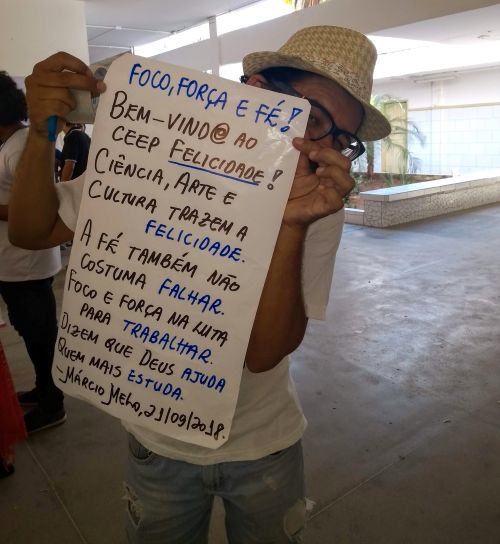 FOCO, FORÇA E FÉ!
BEM-VIND@ AO
CEEP FELICIDADE!
CIÊNCIA, ARTE E
CULTURA TRAZEM A
FELICIDADE.
A FÉ TAMBÉM NÃO
COSTUMA FALHAR.
FOCO E FORÇA NA LUTA
PARA TRABALHAR.
DIZEM QUE DEUS AJUDA
QUEM MAIS ESTUDA.
-MÁRCIO MELO, 21/09/2018.